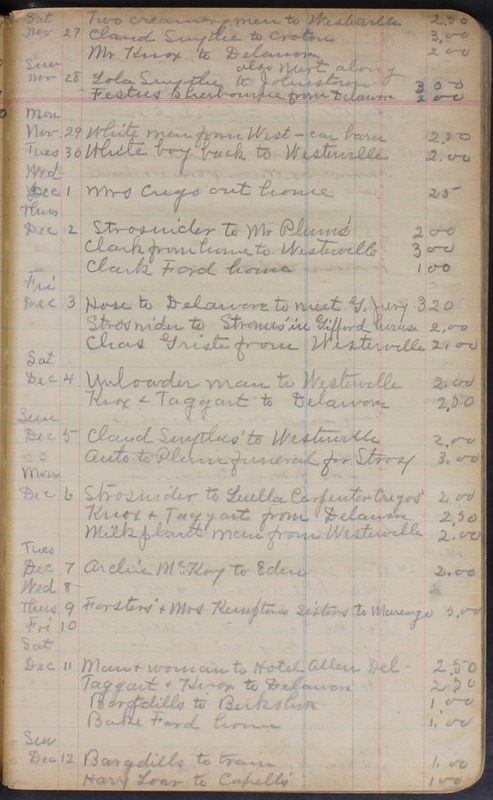 Sat Two creamery men to Westerville 2.50
Nov 27 Claud Smythe to Croton 3.00
Mr Knox to Delaware 2 00
Sun also Mert along
Nov 28 Lola Smythe to Johnstown 3 00
Festus Sherbourne from Delaware 2 00
Mon
Nov 29 White men from West - car barn 2.50
Tues 30 White boy back to Westerville 2.00
Wed
Dec 1 Mrs Crego out home 25
Thurs
Dec 2 Strosnider to Mr Plums' 2 00
Clark from home to Westerville 3 00
Clark Ford home 1 00
Fri
Dec 3 Hose to Delaware to meet G. Jury 3 20
Strosnider to in Gifford house 2.00
Chas Grists from Westerville 2.00
Sat
Dec 4 Unloader man to Westerville 2.00
Knox & Taggart to Delaware 2,50
Sun
Dec 5 Claud Smythes' to Westerville 2.00
Auto to Plum funeral for Stros 3.00
Mon
Dec 6 Strosnider to Luella Carpenter Cregos' 2 00
Knox & Taggart from Delaware 2,50
Milk plant men from Westerville 2.00
Tues
Dec 7 Archie McKoy to Eden 2.00
Wed 8
Thurs 9 Forsters' & Mrs Kemptons sisters to Marengo 3,00
Fri 10
Sat
Dec 11 Man & woman to Hotel Allen Del - 2.50
Taggart & Knox to Delaware 2 50
Bargdills to Berkshire 1 00
Ford home 1.00
Sun
Dec 12 Bargdills to train 1.00
Harry Loar to Capells' 1 00